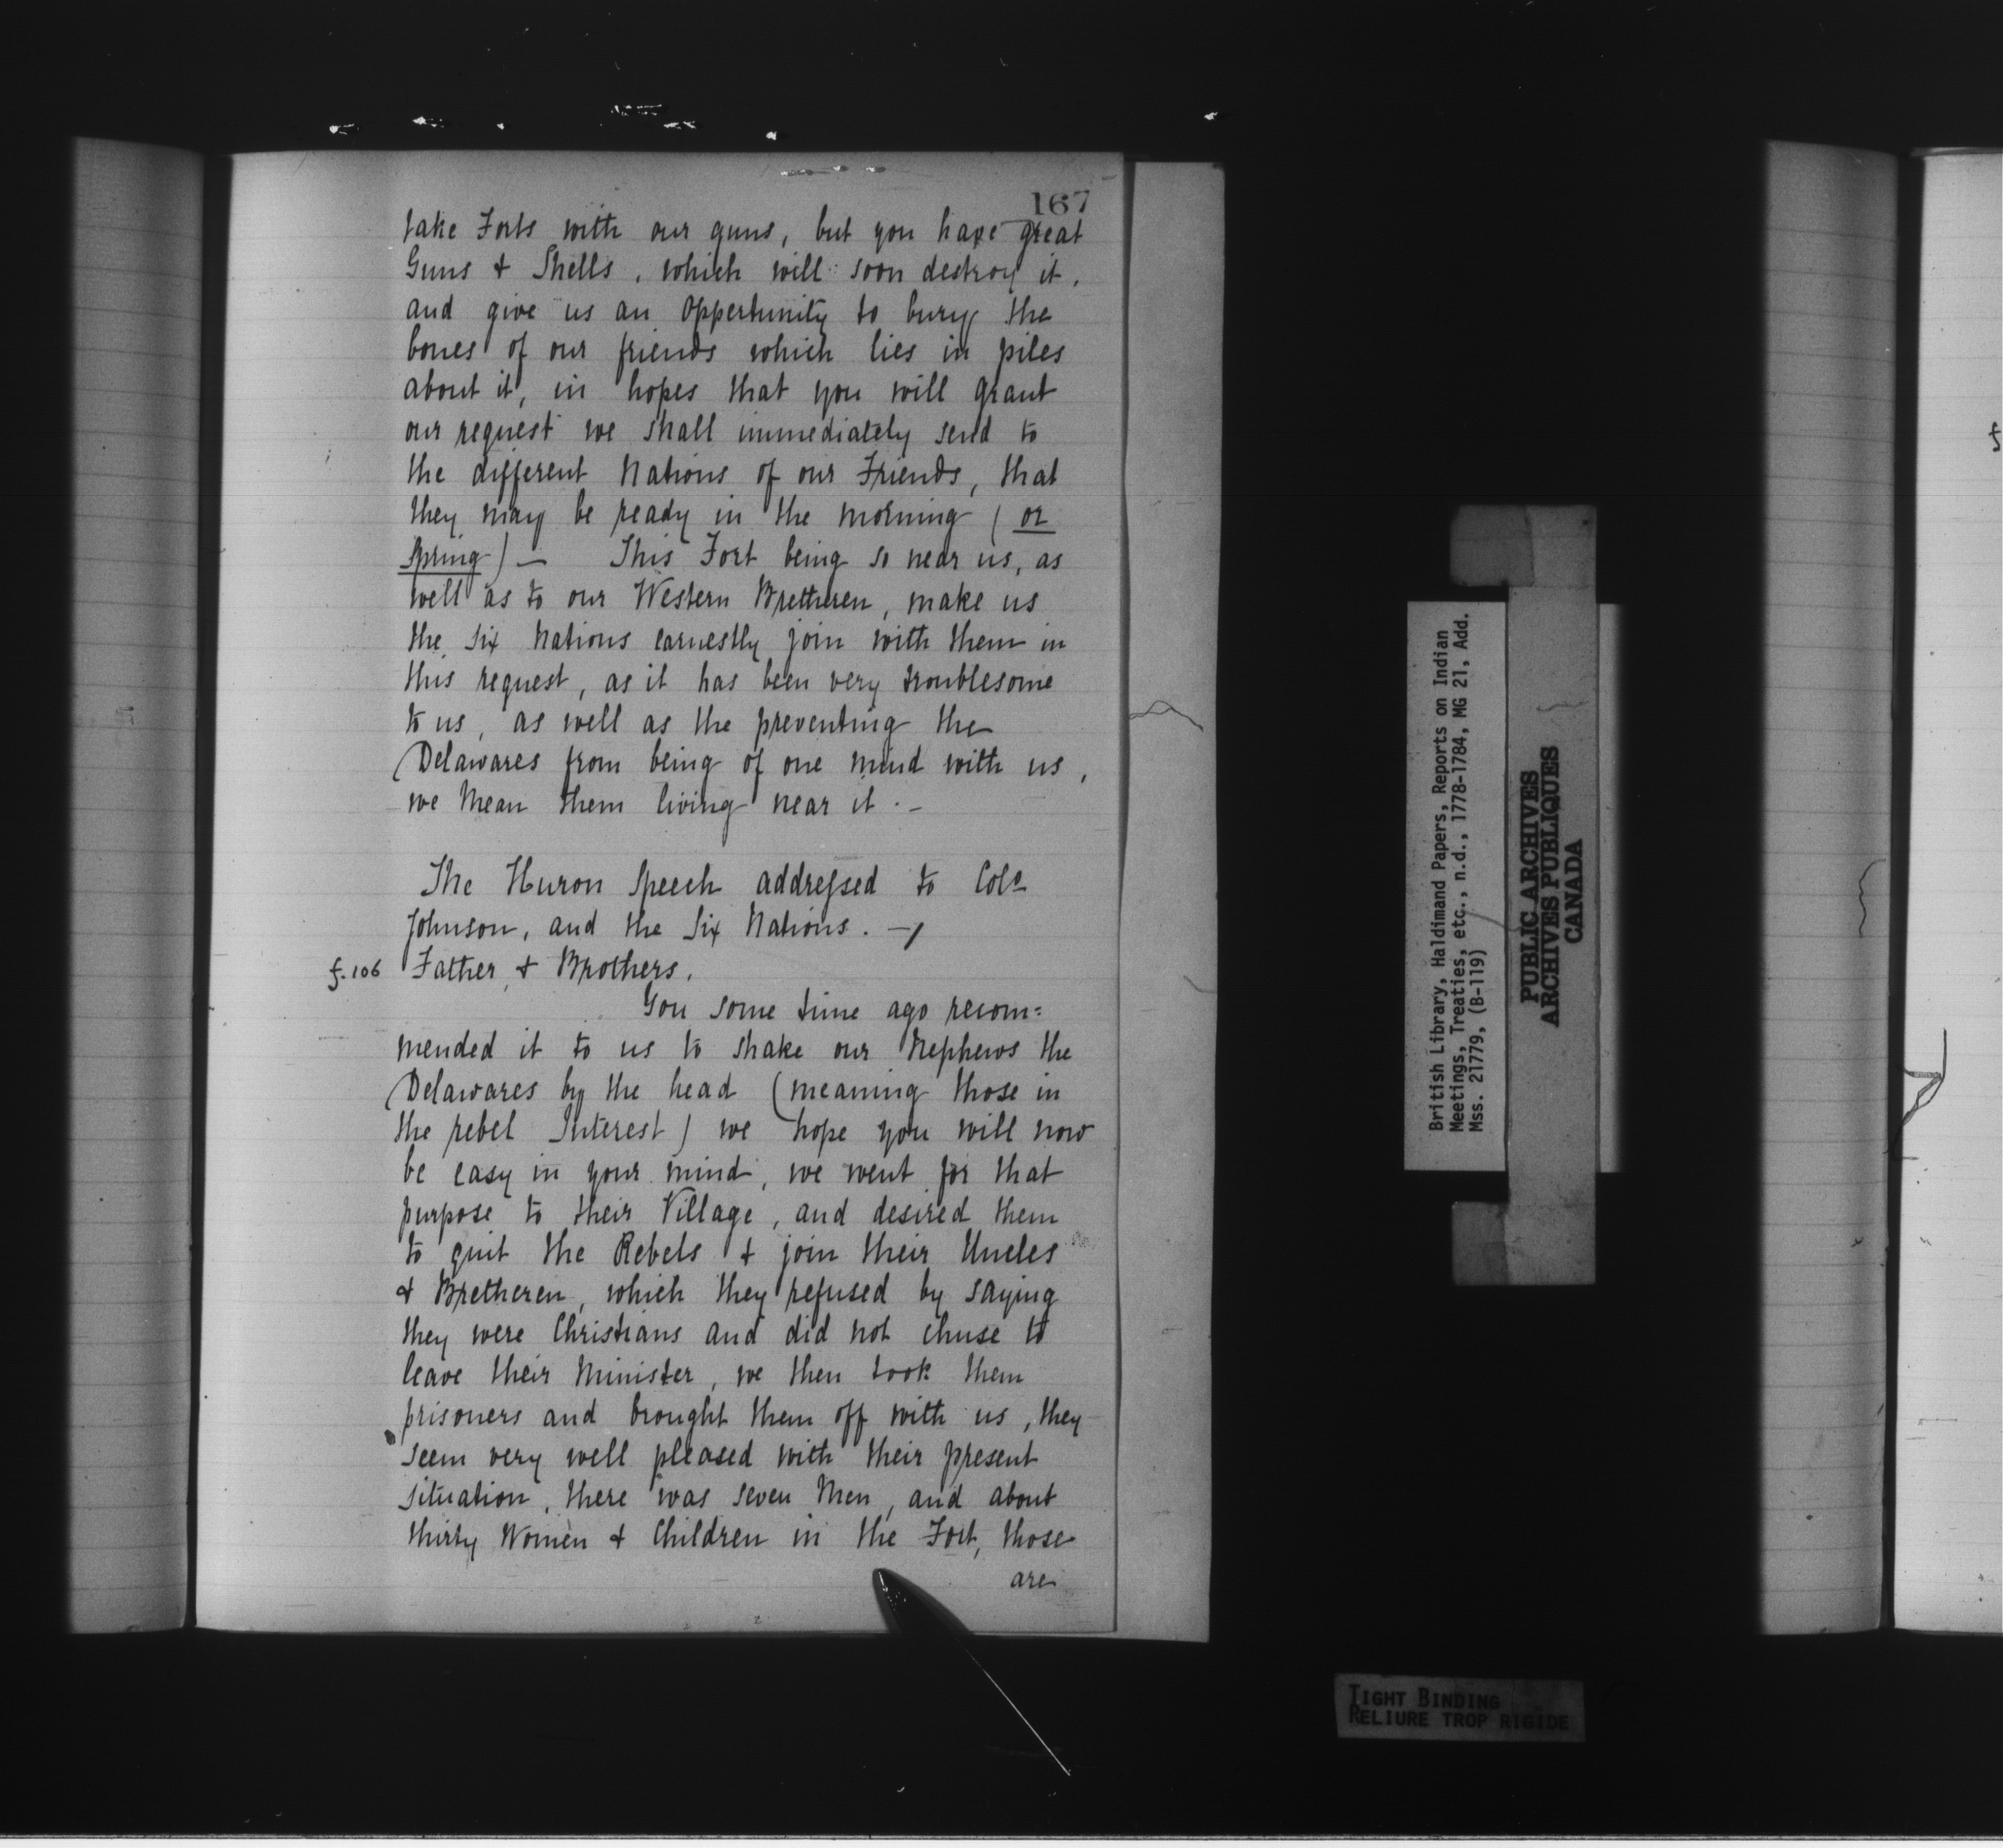 167
take Forts with our guns, but you have great
Guns & Shells, which will soon destroy it,
and give us an Oppertunity to bury the
bones of our friends which lies in piles
about it, in hopes that you will grant
our request we shall immediately send to
the different Nations of our Friends, that
they may be ready in the morning (or
Spring) — This Fort being so near us, as
well as to our Western Bretheren, make us
the Six Nations earnestly join with them in
this request, as it has been very troublesome
to us, as well as the preventing the
Delawares from being of one mind with us,
we Mean them living near it. —
The Huron Speech addressed to Colo
Johnson, and the Six Nations. —,
f.106 Father & Brothers,
You some time ago recom=
mended it to us to shake our Nephews the
Delawares by the head (meaning those in
the rebel Interest) we hope you will now
be easy in your mind, we went for that
purpose to their Village, and desired them
to quit the Rebels & join their Uncles
& Bretheren, which they refused by saying
they were Christians and did not chuse to
leave their Minister, we then took them
prisoners and brought them off with us, they
seem very well pleased with their present
situation, there was seven Men, and about
thirty Women & Children in the Fort, those
are
British Library, Haldimand Papers, Reports on Indian
Meetings, Treaties, etc., n.d., 1778-1784, MG 21, Add.
Mss. 21779, (B-119)
PUBLIC ARCHIVES
ARCHIVES PUBLIQUES
CANADA
TIGHT BINDING
RELIURE TROP RIGIDE
f